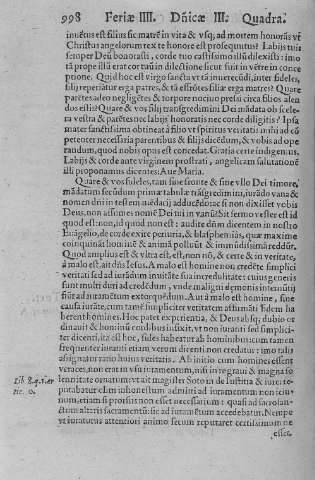 998 Feriæ IIII. Dñicæ III. Quadra.
inuẽtus est filius sic matrẽ in vita & vsq; ad mortem honorãs vt
Christus angelorum rex te honore est prosequutus? Labijs tuis
semper Deũ honorasti, corde tuo castissimo illũ dilexisti: imò
tã propè illũ erat cor tuũ in dilectione sicut fuit in vẽtre in conce
ptione. Quid hoc est virgo sancta vt tã inuerecũdi, inter fideles,
filij reperiãtur erga patres, & tã estrõtes filiæ erga matres? Quare
parẽtes adeo negligẽtes & torpore nocuo pressi circa filios alen
dos estis? Quare & vos filij trãsgredimini Dei mãdata ob scele-
ra vestra & parẽtes nec labijs honoratis nec corde diligitis? Ipsa
mater sanctissima obtineat à filio vt spiritus veritatis mihi ad cõ
petenter necessaria parentibus & filijs dicẽdum, & vobis ad ope-
randum, quod nobis opus est concedat. Gratia certe indigemus,
Labijs & corde ante virginem prostrati, angelicam salutationẽ
illi proponamus dicentes: Aue Maria.
Quare & vos fideles, tam sine fronte & sine vllo Dei timore,
mãdatum secũdum primæ tabulæ trãsgredimini, iurãdo vana &
nomen diui in testem mẽdacij adducẽdo: ac si non dixisset vobis
Deus, non assumes nomẽ Dei tui in vanũ? Sit sermo vester est id
quod est: non, id quod non est: audite dñm dicentem in nostro
Euãgelio, de corde exire periuria, & blasphemias, quæ maxime
coinquinãt hominẽ & animã polluũt & immũdissimã reddũt.
Quod amplius est & vltra est, est, non nõ, & certe & in veritate,
à malo est, ait dñs Iesus. A malo est homine non credẽte simplici
veritati sed ad iurãdum inuitãte sua incredulitate: cuius generis
sunt multi duri ad credẽdum, vnde maligni dęmonis intentũ
fiũt ad iuramẽtum extorquẽdum. Aut à malo est homine, sine
causa iurãte, cum tamẽ simpliciter veritatem affirmãti fidem ha
berent homines. Hoc patet experientia, & Deus absq; dubio or
dinauit & hominũ cordibus infixit, vt non iuranti sed simplici-
ter dicenti, ita est hoc, fides habeatur ab hominibus: cum tamen
frequenter iuranti etiam verum dicenti non credãtur: imò talis
assignatur ratio huius veritatis. Ab initio cum homines essent
veraces, non erat in vsu iuramentum, nisi in re graui & magna so
lennitate ornatum: vt ait magister Soto in de Iustitia & iure: re-
putabatur etiam inhonestum admitti ad iuramentum non iniu-
num, etiam si prorsus non esset necessarium: quasi ad sacrosan-
ctum altaris sacramentũ: sic ad iuramẽtum accedebatur. Nempe
vt iuraturus attentiori animo secum reputaret certissimum ne
esset
Lib. 8. q. 1. ar
tic.